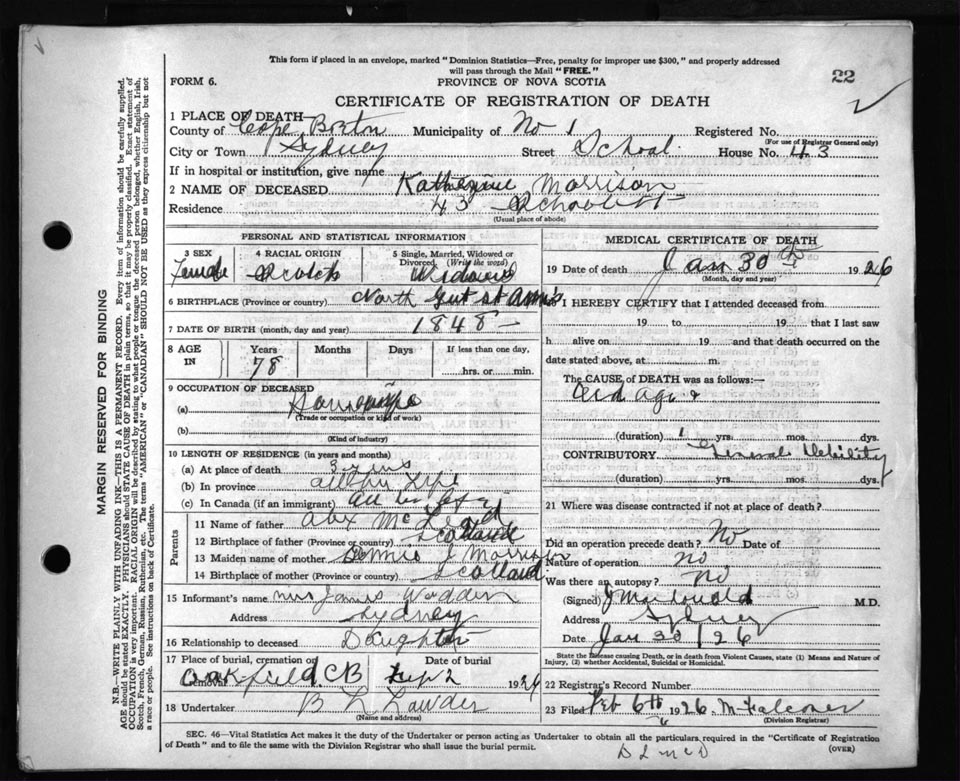 This form if placed in an envelope, marked "Dominion Statistics—Free, penalty for improper use $300," and properly addressed
will pass through the Mail "FREE."
22
FORM 6.
PROVINCE OF NOVA SCOTIA
CERTIFICATE OF REGISTRATION OF DEATH
1 PLACE OF DEATH—
County of Cape Breton Municipality of No 1 Registered No.
(For use of Registrar General only)
City or Town Sydney Street School House No. 43
If in hospital or institution, give name
2 NAME OF DECEASED Katherine Morrison
Residence 43 School St
(Usual place of abode)
PERSONAL AND STATISTICAL INFORMATION
3 SEX Female
4 RACIAL ORIGIN Scotch
5 Single, Married, Widowed or Divorced (Write the word) Widowed
6 BIRTHPLACE (Province or country) North Gut St Ann's
7 DATE OF BIRTH (month, day and year) 1848 —
8 AGE IN
Years 78
Months
Days
If less than one day,
hrs. or min.
9 OCCUPATION OF DECEASED
(a)
(Trade or occupation or kind of work)
(b)
(Kind of industry)
10 LENGTH OF RESIDENCE (in years and months)
(a) At place of death 3 yrs
(b) In province all her life
(c) In Canada (if an immigrant) all her life
Parents
11 Name of father Alex McLeod
12 Birthplace of father (Province or country) Scotland
13 Maiden name of mother Morrison
14 Birthplace of mother (Province or country) Scotland
15 Informant's name Mrs James Wadden
Address Sydney
16 Relationship to deceased Daughter
17 Place of burial, cremation or removal Oakfield CB
Date of burial 2 1926
18 Undertaker B L Lawder
(Name and address)
MEDICAL CERTIFICATE OF DEATH
19 Date of death Jan 30th 1926
(Month, day and year)
I HEREBY CERTIFY that I attended deceased from
19 to 19 that I last saw
h alive on 19 and that death occurred on the
date stated above, at m.
The CAUSE OF DEATH was as follows:—
Old age &
(duration) 1 yrs. mos. dys.
CONTRIBUTORY General Debility
(duration) yrs. mos. dys.
21 Where was disease contracted if not at place of death?
Did an operation precede death? No Date of
Nature of operation no
Was there an autopsy? no
(Signed) J Macdonald M.D.
Address Sydney
Date Jan 30/26
State the Disease causing Death, or in death from Violent Causes, state (1) Means and Nature of
Injury, (2) whether Accidental, Suicidal or Homicidal.
22 Registrar's Record Number
23 Filed Feb 6th 1926 M Falconer
(Division Registrar)
SEC. 46—Vital Statistics Act makes it the duty of the Undertaker or person acting as Undertaker to obtain all the particulars required in the "Certificate of Registration
of Death" and to file the same with the Division Registrar who shall issue the burial permit.
(OVER)
D L McD
MARGIN RESERVED FOR BINDING
N.B.—WRITE PLAINLY WITH UNFADING INK—THIS IS A PERMANENT RECORD. Every item of information should be carefully supplied.
AGE should be stated EXACTLY. PHYSICIANS should STATE CAUSE OF DEATH in plain terms, so that it may be properly classified. Exact statement of
OCCUPATION is very important. RACIAL ORIGIN will be described by stating to what people or tongue the deceased person belonged, whether English, Irish,
Scotch, French, German, Russian, Ruthenian, etc. The terms "AMERICAN" or "CANADIAN" SHOULD NOT BE USED as they express citizenship but not
a race or people. See instructions on back of Certificate.